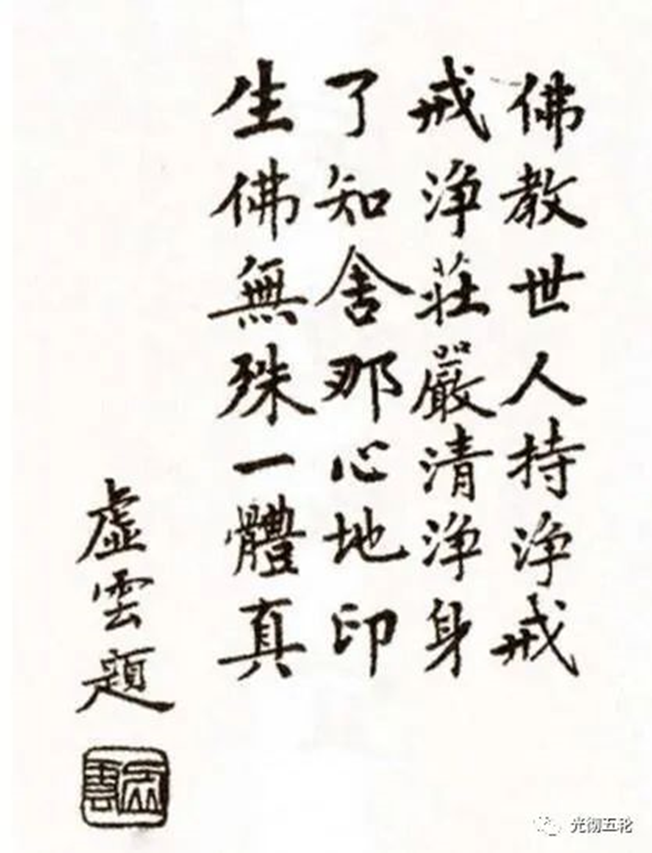 佛教世人持浄戒
戒浄莊嚴清浄身
了知舍那心地印
生佛無殊一體真
虛雲題
虛雲
光彻五轮